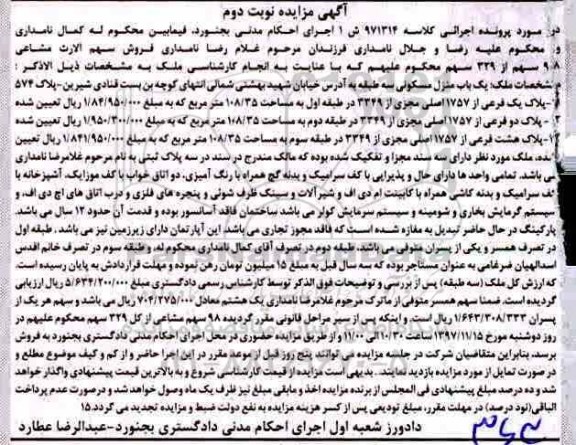 آگهی مزایده نوبت دوم
در مورد پرونده اجرائی کلاسه ۹۷۱۳۱۴ ش ۱ اجرای احکام مدنی بجنورد، فیمابین محکوم له کمال نامداری
و محکوم علیه رضا و جلال نامداری فرزندان مرحوم غلام رضا نامداری فروش سهم الارث مشاعی
۹۸ سهم از ۳۲۹ سهم محکوم علیهم که با عنایت به انجام کارشناسی ملک به مشخصات ذیل الاذکر :
مشخصات ملک: یک باب منزل مسکونی سه طبقه به آدرس خیابان شهید بهشتی شمالی انتهای کوچه بن بست قنادی شیرین-پلاک ۵۷۴
-پلاک یک فرعی از ۱۷۵۷ اصلی مجزی از ۳۳۴۹ در طبقه اول به مساحت ۱۰۸/۳۵ متر مربع که به مبلغ ۱/۸۴۱/۹۵۰/۰۰۰ ریال تعیین شده
- پلاک دو فرعی از ۱۷۵۷ اصلی مجزی از ۳۳۴۹ در طبقه دوم به مساحت ۱۰۸/۳۵ متر مربع که به مبلغ ۱/۹۵۰/۳۰۰/۰۰۰ ریال تعیین شده
-پلاک هشت فرعی از ۱۷۵۷ اصلی مجزی از ۳۳۴۹ در طبقه سوم به مساحت ۱۰۸/۳۵ متر مربع که به مبلغ ۱/۸۴۱/۹۵۰/۰۰۰ ریال تعیین
شده، ملک مورد نظر دارای سه سند مجزا و تفکیک شده بوده که مالک مندرج در سند در سه پلاک ثبتی به نام مرحوم غلامرضا نامداری
می باشد. تمامی واحد ها دارای حال و پذیرایی با کف سرامیک و بدنه گچ همراه با رنگ آمیزی، دو اتاق خواب با کف موزاییک، آشپزخانه با
کف سرامیک و بدنه کاشی همراه با کابینت ام دی اف و شیرآلات و سینک ظرف شوئی و پنجره های فلزی و درب اتاق های اچ دی اف، و
سیستم گرمایش بخاری و شومینه و سیستم سرمایش کولر می باشد ساختمان فاقد آسانسور بوده و قدمت آن حدود ۱۲ سال می باشد.
پارکینگ در حال حاضر تبدیل به مغازه شده است که فاقد مجوز تجاری می باشد، این آپارتمان دارای زیرزمین نیز می باشد. طبقه اول
در تصرف همسر و یکی از پسران متوفی می باشد، طبقه دوم در تصرف آقای کمال نامداری محکوم له، و طبقه سوم در تصرف خانم اقدس
اسدالهیان ضرغامی به عنوان مستاجر بوده که سه سال قبل به مبلغ ۱۵ میلیون تومان رهن نموده و مهلت قراردادش به پایان رسیده است.
که ارزش کل ملک (سه طبقه) پس از بررسی و توضیحات فوق الذکر توسط کارشناس رسمی دادگستری مبلغ ۵/۶۳۴/۲۰۰/۰۰۰ ریال ارزیابی
گردیده است. ضمنا سهم همسر متوفی از ماترک مرحوم غلامرضا نامداری یک هشتم معادل ۷۰۴/۲۷۵/۰۰۰ ریال می باشد و سهم هر یک از
پسران ۱/۶۴۳/۳۰۸/۳۳۳ ریال است. و اینکه پس از سیر مراحل قانونی مقرر گردیده ۹۸ سهم مشاعی از کل ۳۲۹ سهم محکوم علیهم در
روز دوشنبه مورخ ۱۳۹۷/۱۱/۱۵ ساعت ۱۰/۳۰ الی ۱۱/۰۰ و از طریق مزایده حضوری در محل اجرای احکام مدنی دادگستری بجنورد به فروش
برسد، بنابراین متقاضیان شرکت در جلسه مزایده می توانند پنج روز قبل از موعد مقرر در این اجرا حاضر و از کم و کیف موضوع مطلع و
در صورت تمایل از مورد مزایده بازدید نمایند. بدیهی است مزایده از قیمت کارشناسی شروع و به بالاترین قیمت پیشنهادی واگذار خواهد
شد و ده درصد مبلغ پیشنهادی فی المجلس از برنده مزایده اخذ و مابقی مبلغ نیز ظرف یک ماه وصول خواهد شد و درصورت عدم پرداخت
الباقی(نود درصد) در مهلت مقرر، مبلغ تودیعی پس از کسر هزینه مزایده به نفع دولت ضبط و مزایده تجدید می گردد.۱۵
دادورز شعبه اول اجرای احکام مدنی دادگستری بجنورد-عبدالرضا عطارد